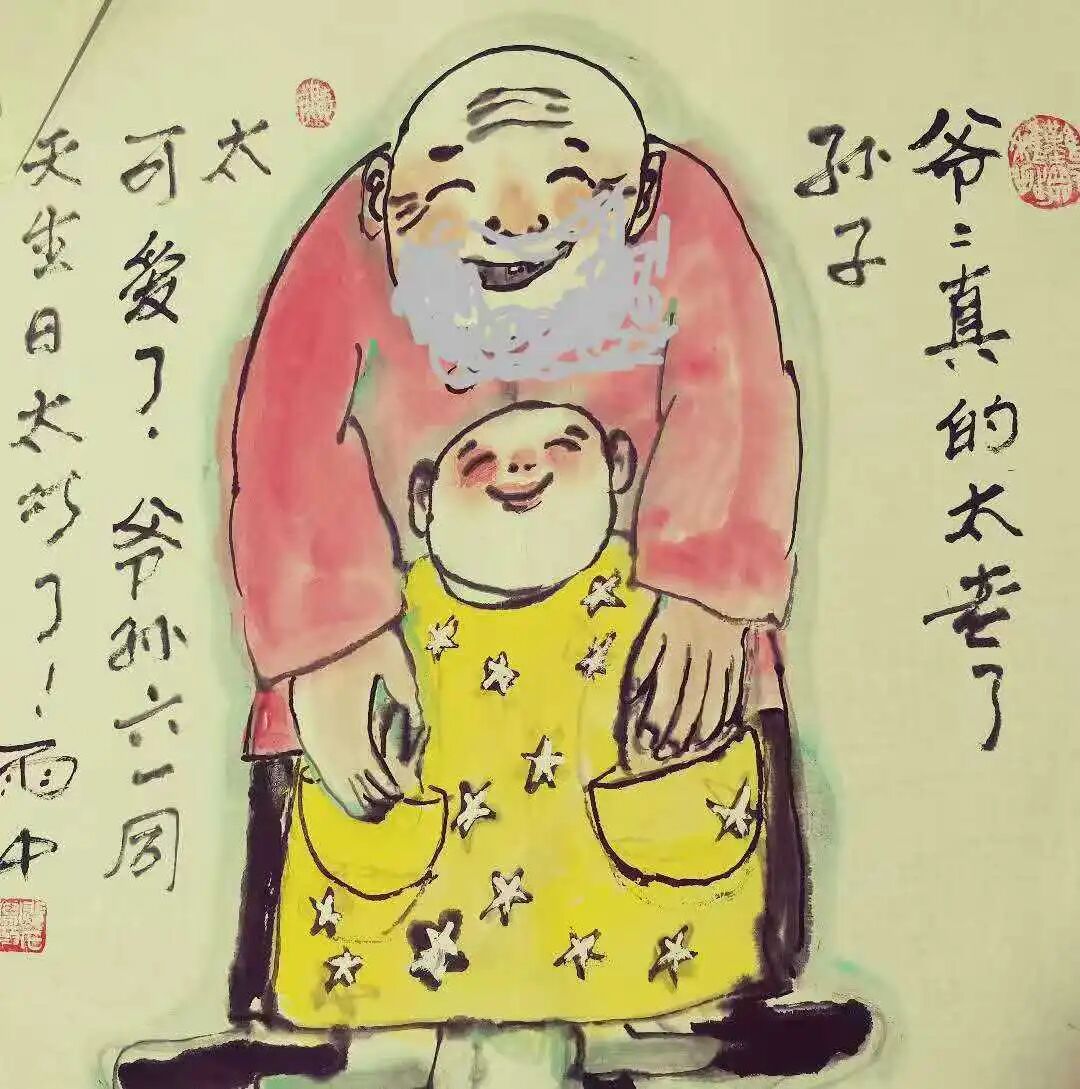 爷〻真的太老了
孙子
太
可爱了.爷孙六一同
天生日太巧了!雨中